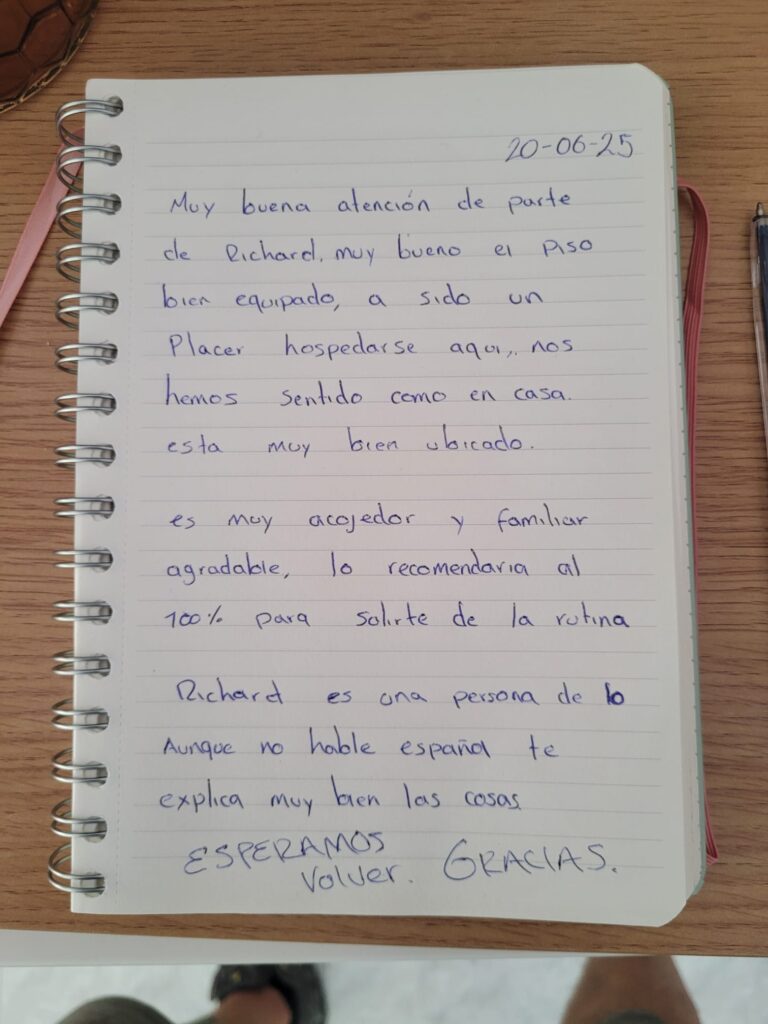 20-06-25
Muy buena atención de parte
de Richard, muy bueno el piso
bien equipado, a sido un
Placer hospedarse aqui, nos
hemos sentido como en casa.
esta muy bien ubicado.
es muy acojedor y familiar
agradable, lo recomendaria al
100% para salirte de la rutina
Richard es una persona de lo
Aunque no hable español te
explica muy bien las cosas.
ESPERAMOS
Volver. GRACIAS.